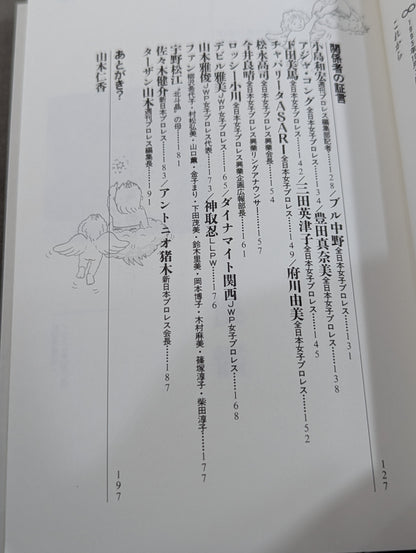 8
これから
関係者の証言 127
小島和宏 週刊プロレス編集部記者……128／ブル中野 全日本女子プロレス……131
アジャ・コング 全日本女子プロレス……134／豊田真奈美 全日本女子プロレス……138
下田美馬 全日本女子プロレス……142／三田英津子 全日本女子プロレス……145
チャパリータASARI 全日本女子プロレス……149／府川由美 全日本女子プロレス……152
松永高司 全日本女子プロレス興業会長……154
今井良晴 全日本女子プロレス興業リングアナウンサー……157
ロッシー小川 全日本女子プロレス興業企画広報部長……161
デビル雅美 JWP女子プロレス……165／ダイナマイト関西 JWP女子プロレス……168
山本雅俊 JWP女子プロレス代表……173／神取忍 LLPW……176
ファン 柳沢希代子・村松弘美・山口薫・金子まり・下田茂美・鈴木里美・岡本博子・木村麻美・篠塚淳子・柴田淳子……177
宇野松江 「北斗晶」の母……181
佐々木健介 新日本プロレス……183／アントニオ猪木 新日本プロレス会長……187
ターザン山本 週刊プロレス編集長……191
あとがき？ 197
山本仁香